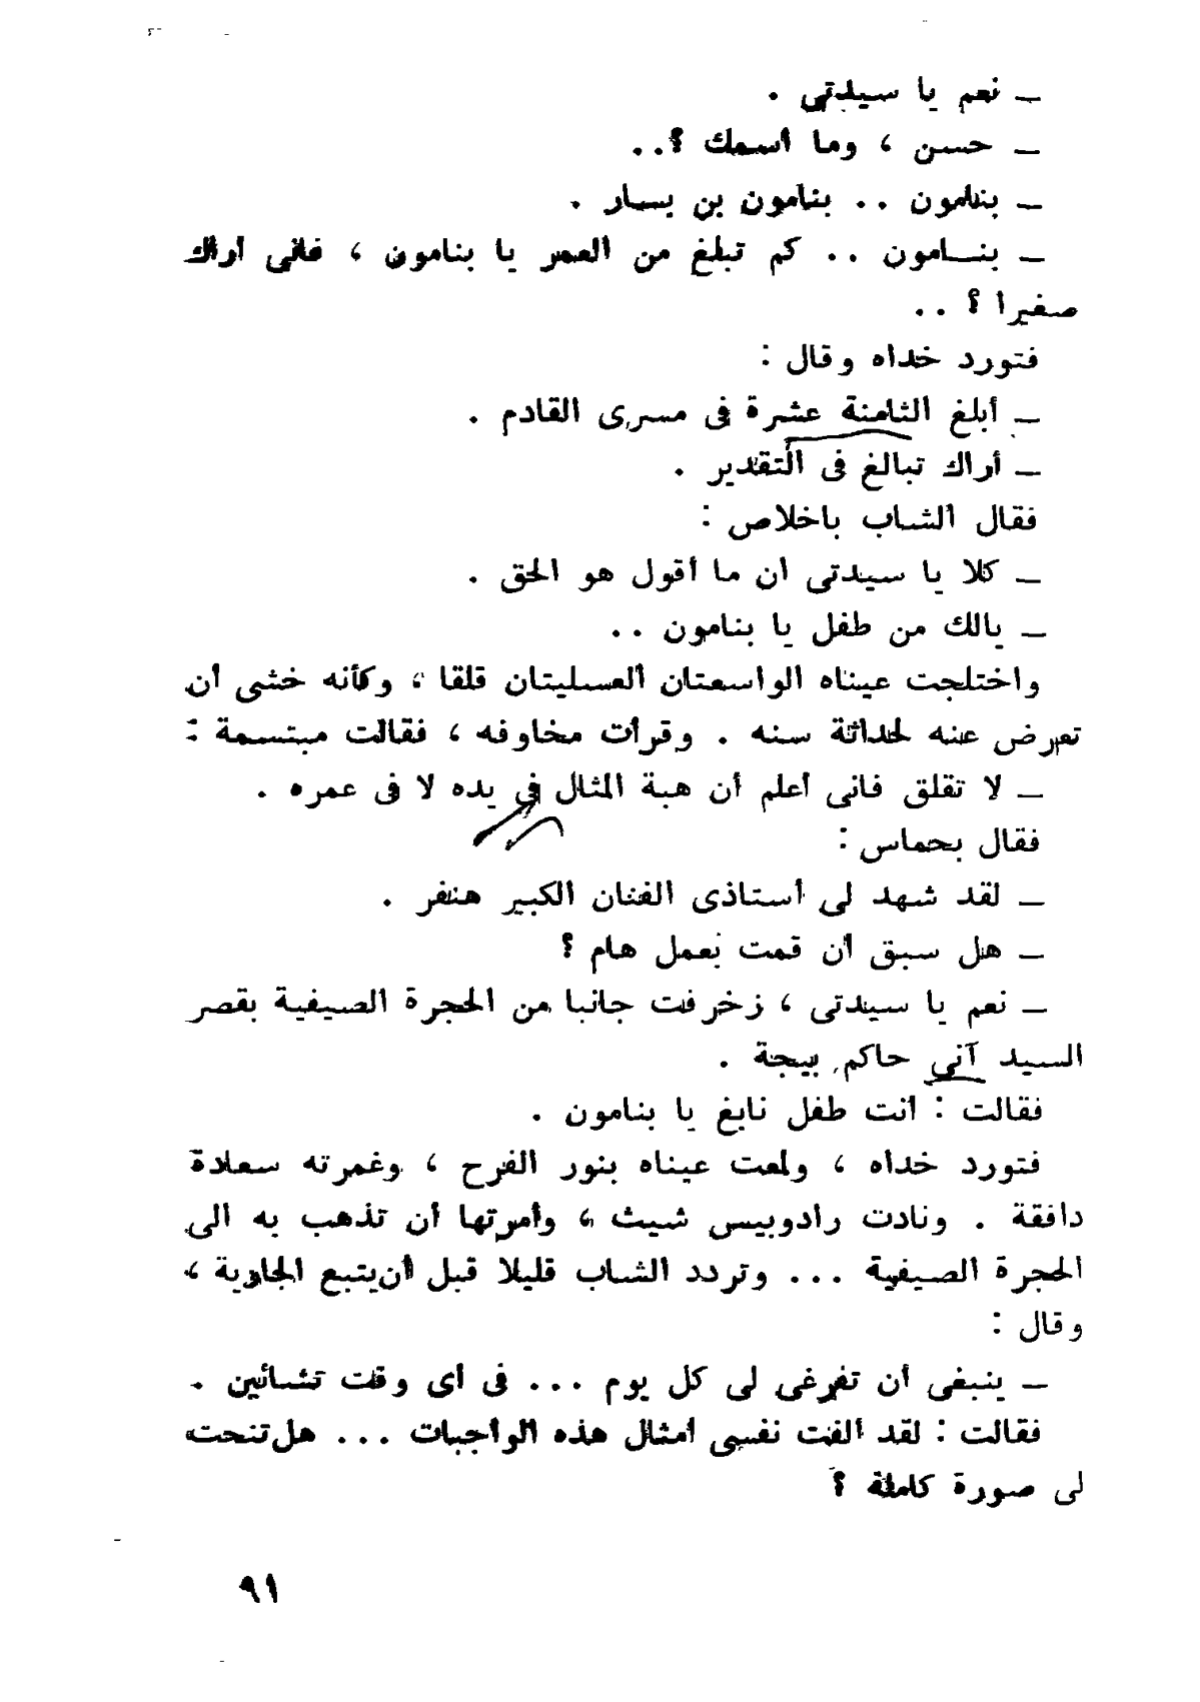 ـ نعم يا سيدتى .
ـ حسن ، وما أسمك ؟ . .
ـ بنامون . . بنامون بن بسار .
ـ بنـــامون . . كم تبلغ من العمر يا بنامون ، فانى أراك
صغيرا ؟ . .
فتورد خداه وقال :
ـ أبلغ الثامنة عشرة فى مسرى القادم .
ـ أراك تبالغ فى التقدير .
فقال الشاب باخلاص :
ـ كلا يا سيدتى ان ما أقول هو الحق .
ـ يالك من طفل يا بنامون . .
واختلجت عيناه الواسعتان العسليتان قلقا ، وكأنه خشى أن
تعرض عنه لحداثة سنه . وقرأت مخاوفه ، فقالت مبتسمة :
ـ لا تقلق فانى أعلم أن هبة المثال فى يده لا فى عمره .
فقال بحماس :
ـ لقد شهد لى أستاذى الفنان الكبير هنفر .
ـ هل سبق أن قمت بعمل هام ؟
ـ نعم يا سيدتى ، زخرفت جانبا من الحجرة الصيفية بقصر
السيد آنى حاكم بيجة .
فقالت : أنت طفل نابغ يا بنامون .
فتورد خداه ، ولمعت عيناه بنور الفرح ، وغمرته سعادة
دافقة . ونادت رادوبيس شيث ، وأمرتها أن تذهب به الى
الحجرة الصيفية . . . وتردد الشاب قليلا قبل أن يتبع الجارية ،
وقال :
ـ ينبغى أن تفرغى لى كل يوم . . . فى أى وقت تشائين .
فقالت : لقد ألفت نفسى أمثال هذه الواجبات . . . هل تنحت
لى صورة كاملة ؟
٩١